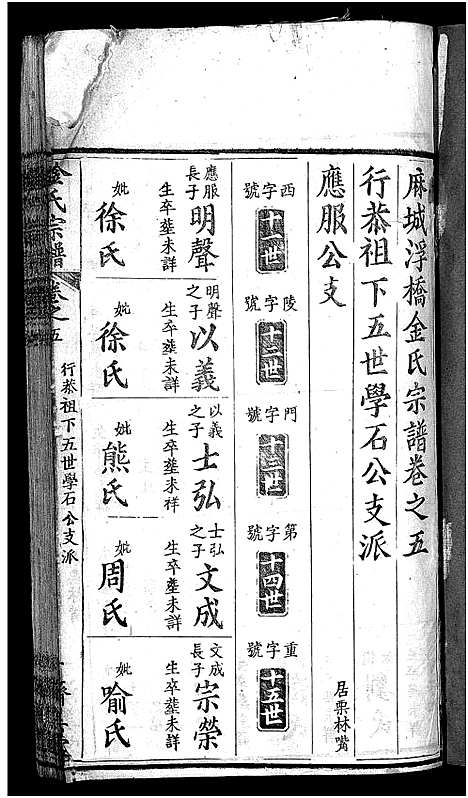 麻城浮橋金氏宗譜卷之五
行恭祖下五世學石公支派
應服公支
居栗林嘴
西字號
十一世
陵字號
十二世
門字號
十三世
第字號
十四世
重字號
十五世
應服長子明聲
生卒塟未詳
妣徐氏
明聲之子以義
生卒塟未詳
妣徐氏
以義之子士弘
生卒塟未祥
妣熊氏
士弘之子文成
生卒塟未詳
妣周氏
文成長子宗榮
生卒塟未詳
妣喻氏
金氏宗譜
卷之五
行恭祖下五世學石公支派